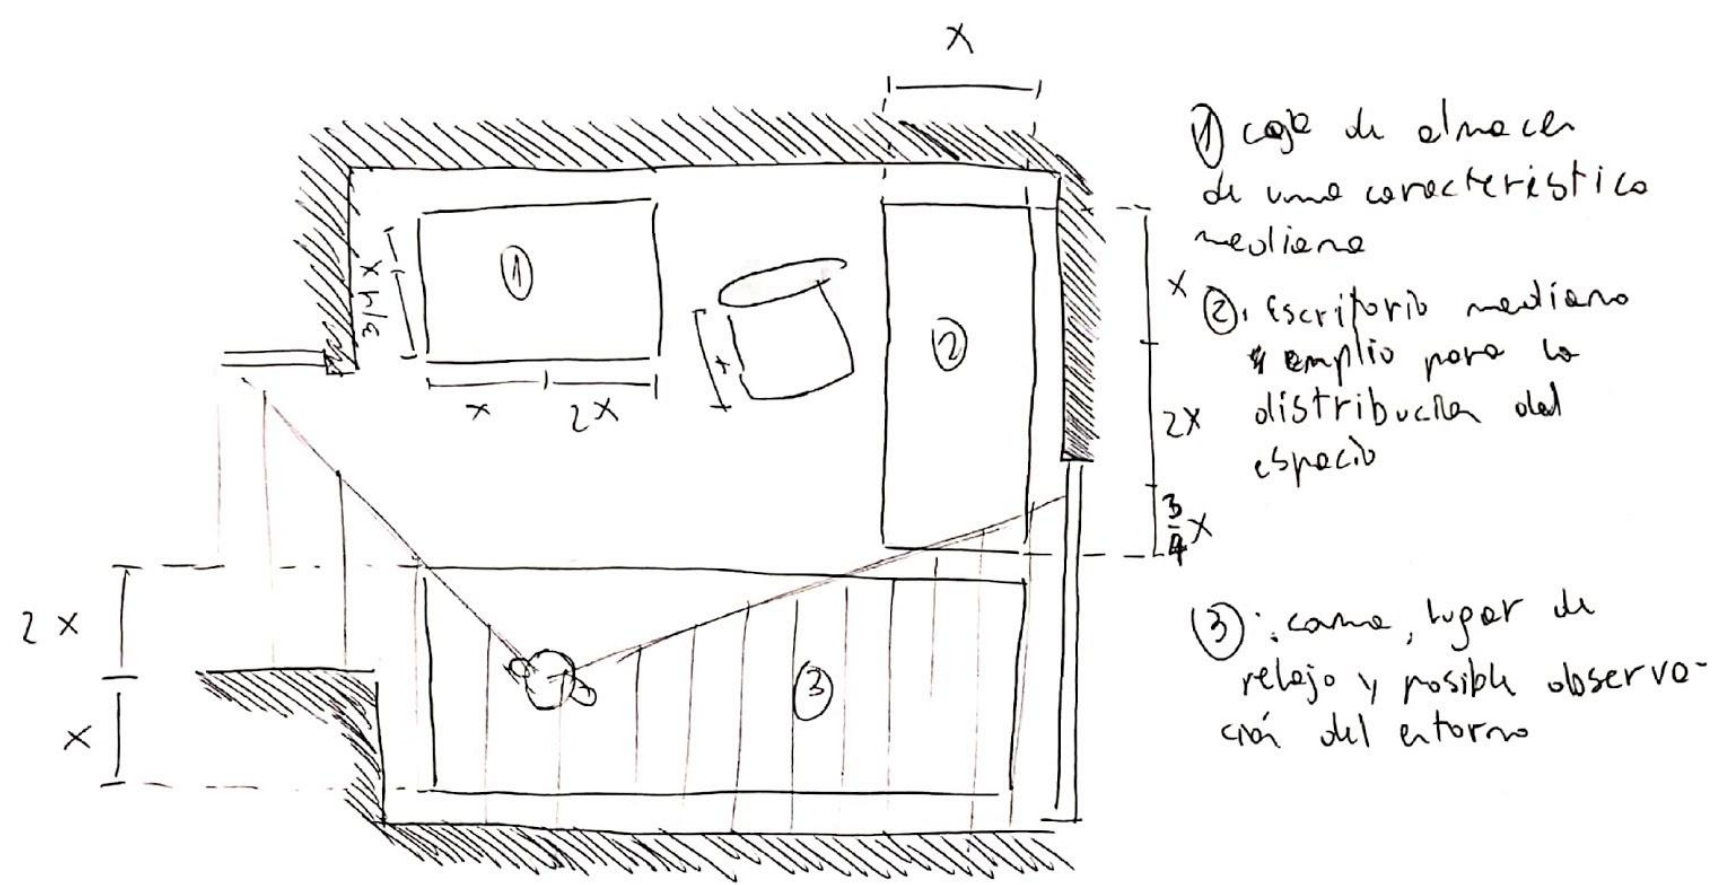 X
① caja de almacen
de una caracteristica
mediana
②: Escritorio mediano
y amplio para la
distribución del
espacio
③: cama, lugar de
relajo y posible observa-
ción del entorno
①
3/4 X
X
2X
X
②
X
2X
3/4 X
2X
X
③